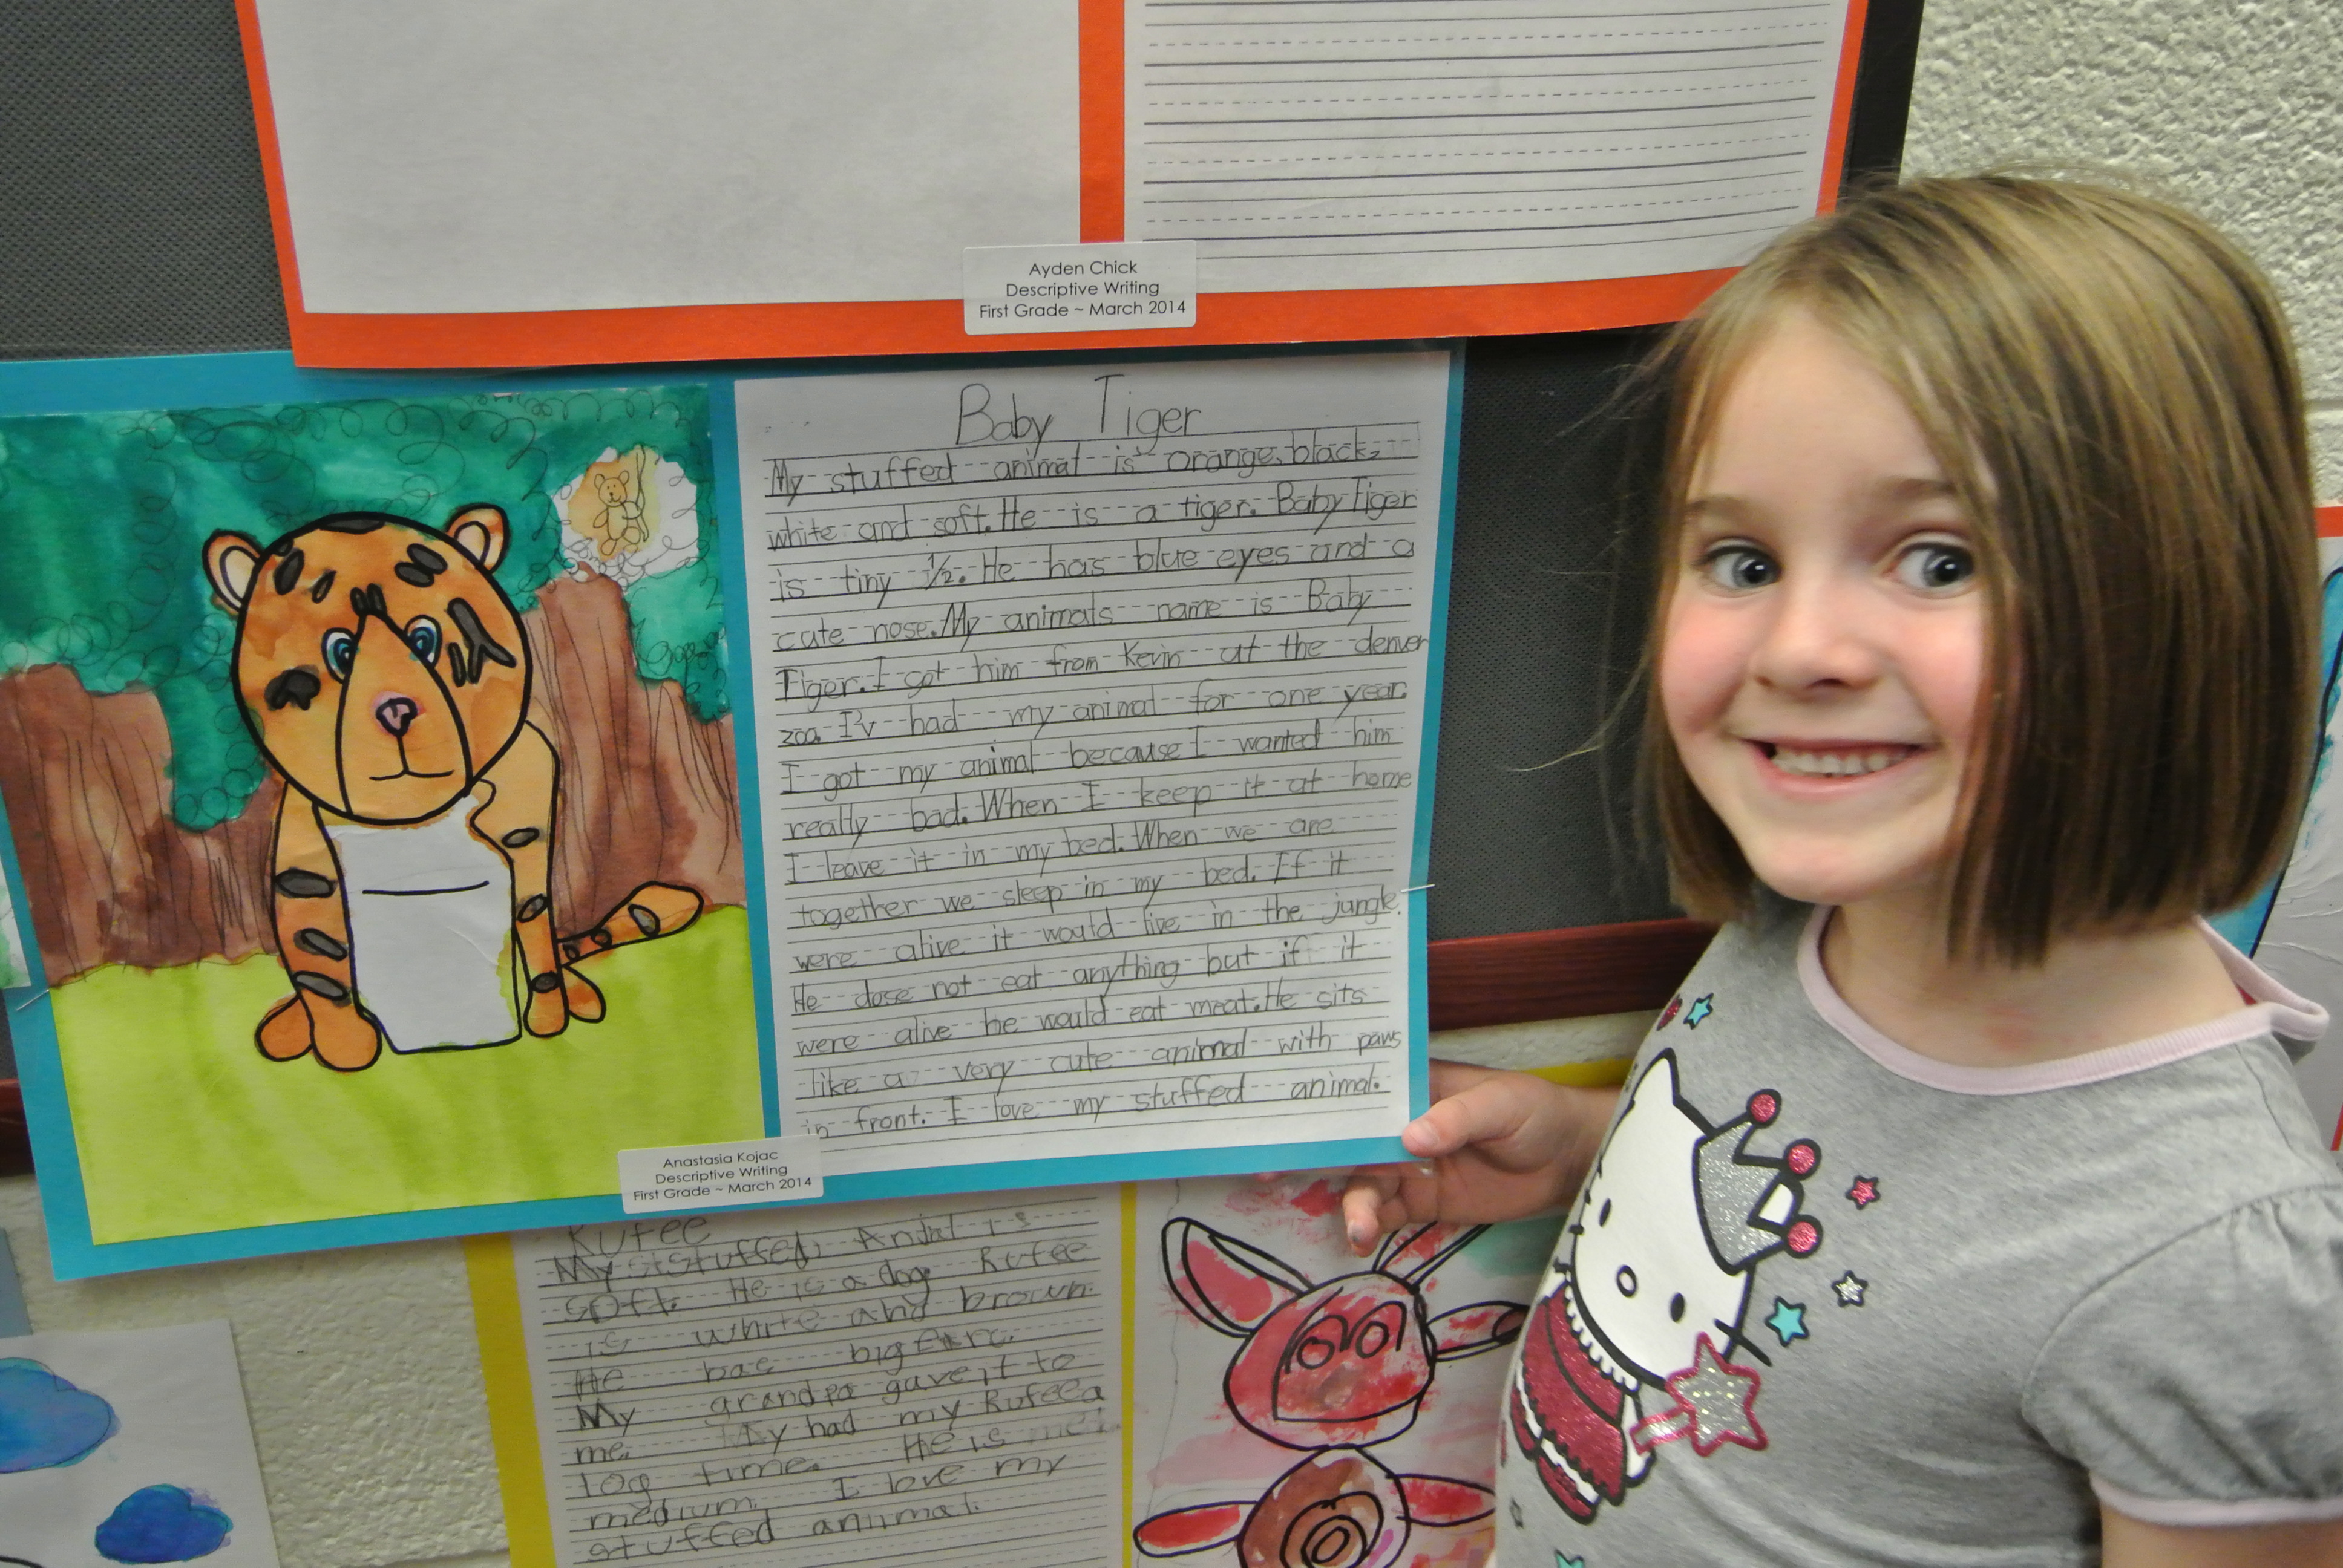 Ayden Chick
Descriptive Writing
First Grade ~ March 2014
Baby Tiger
My stuffed animal is orange, black,
white and soft. He is a tiger. Baby Tiger
is tiny ½. He has blue eyes and a
cute nose. My animals name is Baby
Tiger. I got him from Kevin at the denver
zoo. I'v had my animal for one year.
I got my animal because I wanted him
really bad. When I keep it at home
I leave it in my bed. When we are
together we sleep in my bed. If it
were alive it would live in the jungle.
He dose not eat anything but if it
were alive he would eat meat. He sits
like a very cute animal with paws
in front. I love my stuffed animal.
Anastasia Kojac
Descriptive Writing
First Grade ~ March 2014
Rufee
My ststuffed Andial is
soft. He is a dog. Rufee
is white and brown.
He bac big
My grandpa gave it to
me. My had my Rufeea
log time. He is
medium. I love my
stuffed animal.